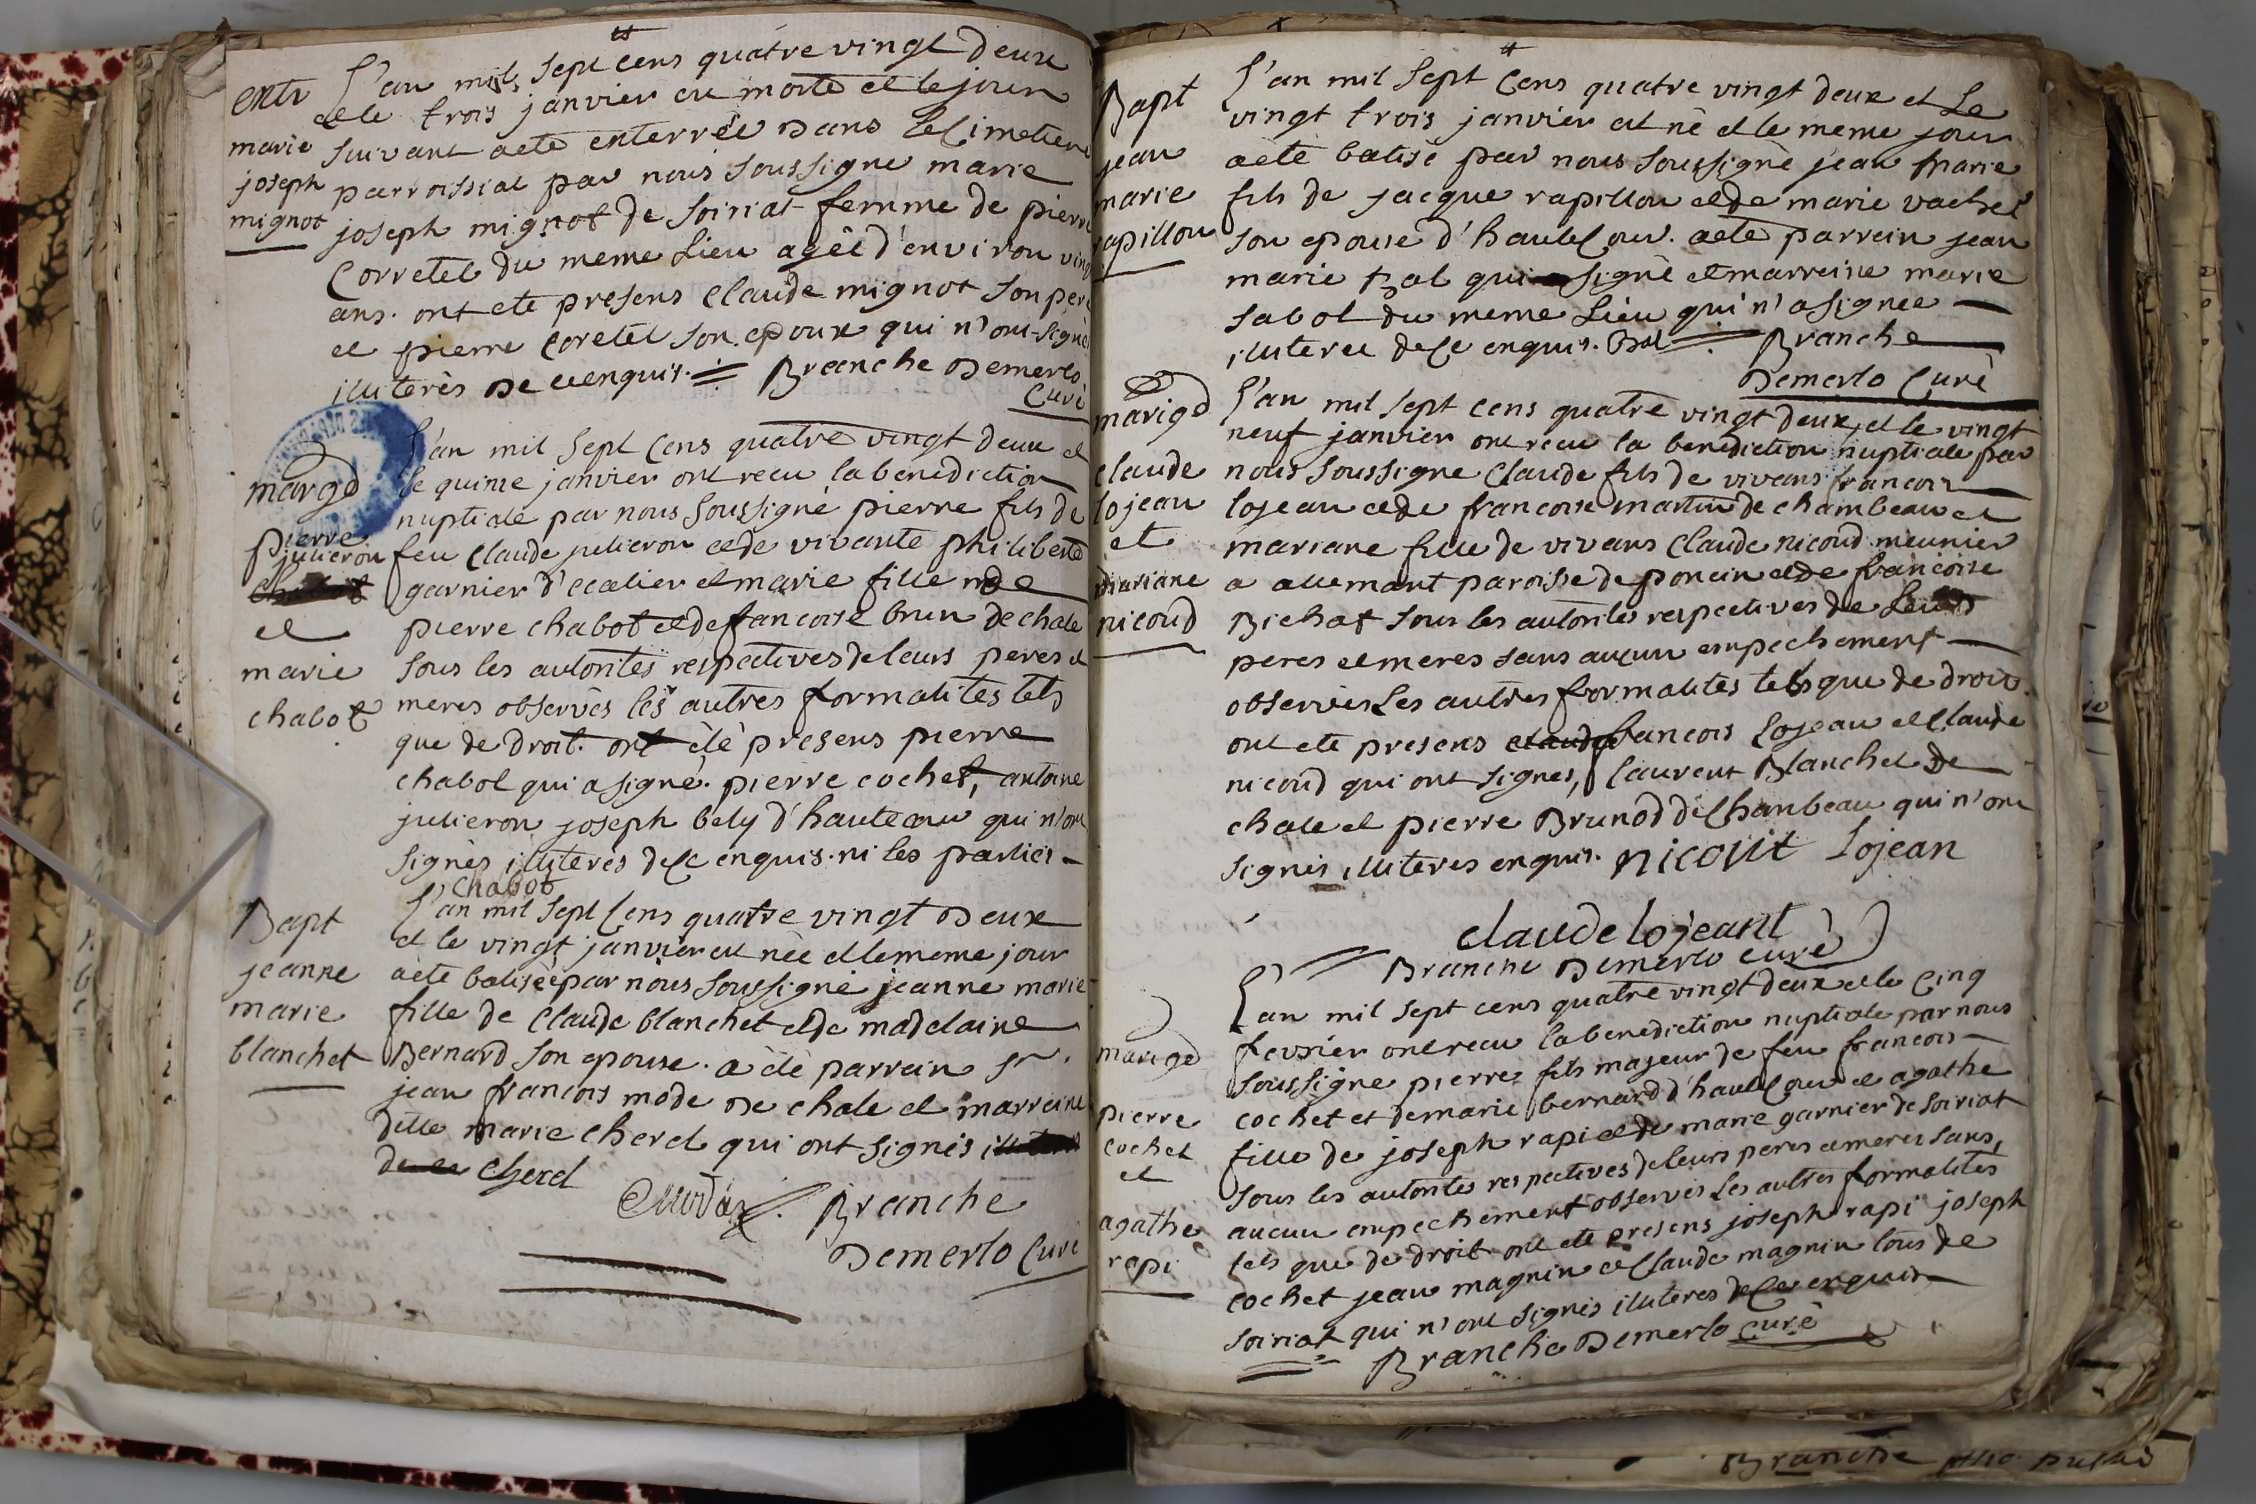 entr
marie
joseph
mignot
L'an mil sept cens quatre vingt deux
et le trois janvier est morte et le jour
suivant a eté enterrée dans le Cimetiere
parroissial par nous soussigné marie
joseph mignot de soiriat femme de pierre
Corretel du meme Lieu agée d'environ vingt
ans. ont eté presens Claude mignot son pere
et pierre Coretel son epoux qui n'ont signés
illiterés de ce enquis. Branche Demerlo
Curé
mariage
pierre
julieron
et
marie
chabot
L'an mil sept Cens quatre vingt deux et
le quinze janvier ont recu la benediction
nuptiale par nous soussigné pierre fils de
feu Claude julieron et de vivante philiberte
garnier d' et marie fille de
pierre chabot et de francoise brun de chale
sous les autorités respectives de leurs peres et
meres observés les autres formalités tels
que de droit. ont été presens pierre
chabot qui a signé. pierre cochet, antoine
julieron joseph bely d'hautecour qui n'ont
signés illiterés de ce enquis. ni les parties
chabot
Bapt
jeanne
marie
blanchet
L'an mil sept Cens quatre vingt Deux
et le vingt janvier est née et le meme jour
a eté batisée par nous soussigné jeanne marie
fille de Claude blanchet et de madelaine
Bernard son epouse. a été parrein sr.
jean francois mode de chale et marreine
Dlle marie cherel qui ont signés
de ce cherel
Branche
Demerlo Curé
Bapt
jean
marie
rapillon
L'an mil sept Cens quatre vingt deux et Le
vingt trois janvier est né et le meme jour
a eté batisé par nous soussigné jean marie
fils de jacque rapillon et de marie vachet
son epouse d'hauteCour. a eté parrein jean
marie Bal qui a signé et marreine marie
sabot du meme Lieu qui n'a signée
illiterée de Ce enquis. Bal Branche
Demerlo Curé
mariage
claude
lojean
et
mariane
nicoud
L'an mil sept cens quatre vingt deux, et le vingt
neuf janvier ont recu la benediction nuptiale par
nous soussigné Claude fils de vivans francois
lojean et de francoise martin de chambeau et
mariane fille de vivans Claude nicoud meunier
a allemant paroisse de poncin et de francoise
Bichat sous les autorités respectives de Leurs
peres et meres sans aucun empechement
observés Les autres formalités tels que de droit.
ont eté presens claude francois Lojean et Claude
nicoud qui ont signés, Laurent Blanchet de
chale et pierre Brunod de Chambeau qui n'ont
signés illiterés enquis. nicout lojean
claude lojeant
Branche Demerlo curé
mariage
pierre
cochet
et
agathe
rapi
L'an mil sept cens quatre vingt deux et le Cinq
fevrier ont recu la benediction nuptiale par nous
soussigné pierre fils majeur de feu francois
cochet et de marie bernard d'hauteCour et agathe
fille de joseph rapi et de marie garnier de soiriat
sous les autorités respectives de leurs peres et meres sans
aucun empechement observés Les autres formalités
tels que de droit. ont eté presens joseph rapi joseph
cochet jean magnin et Claude magnin tous de
soiriat qui n'ont signés illiterés de Ce enquis
Branche Demerlo curé
Branche